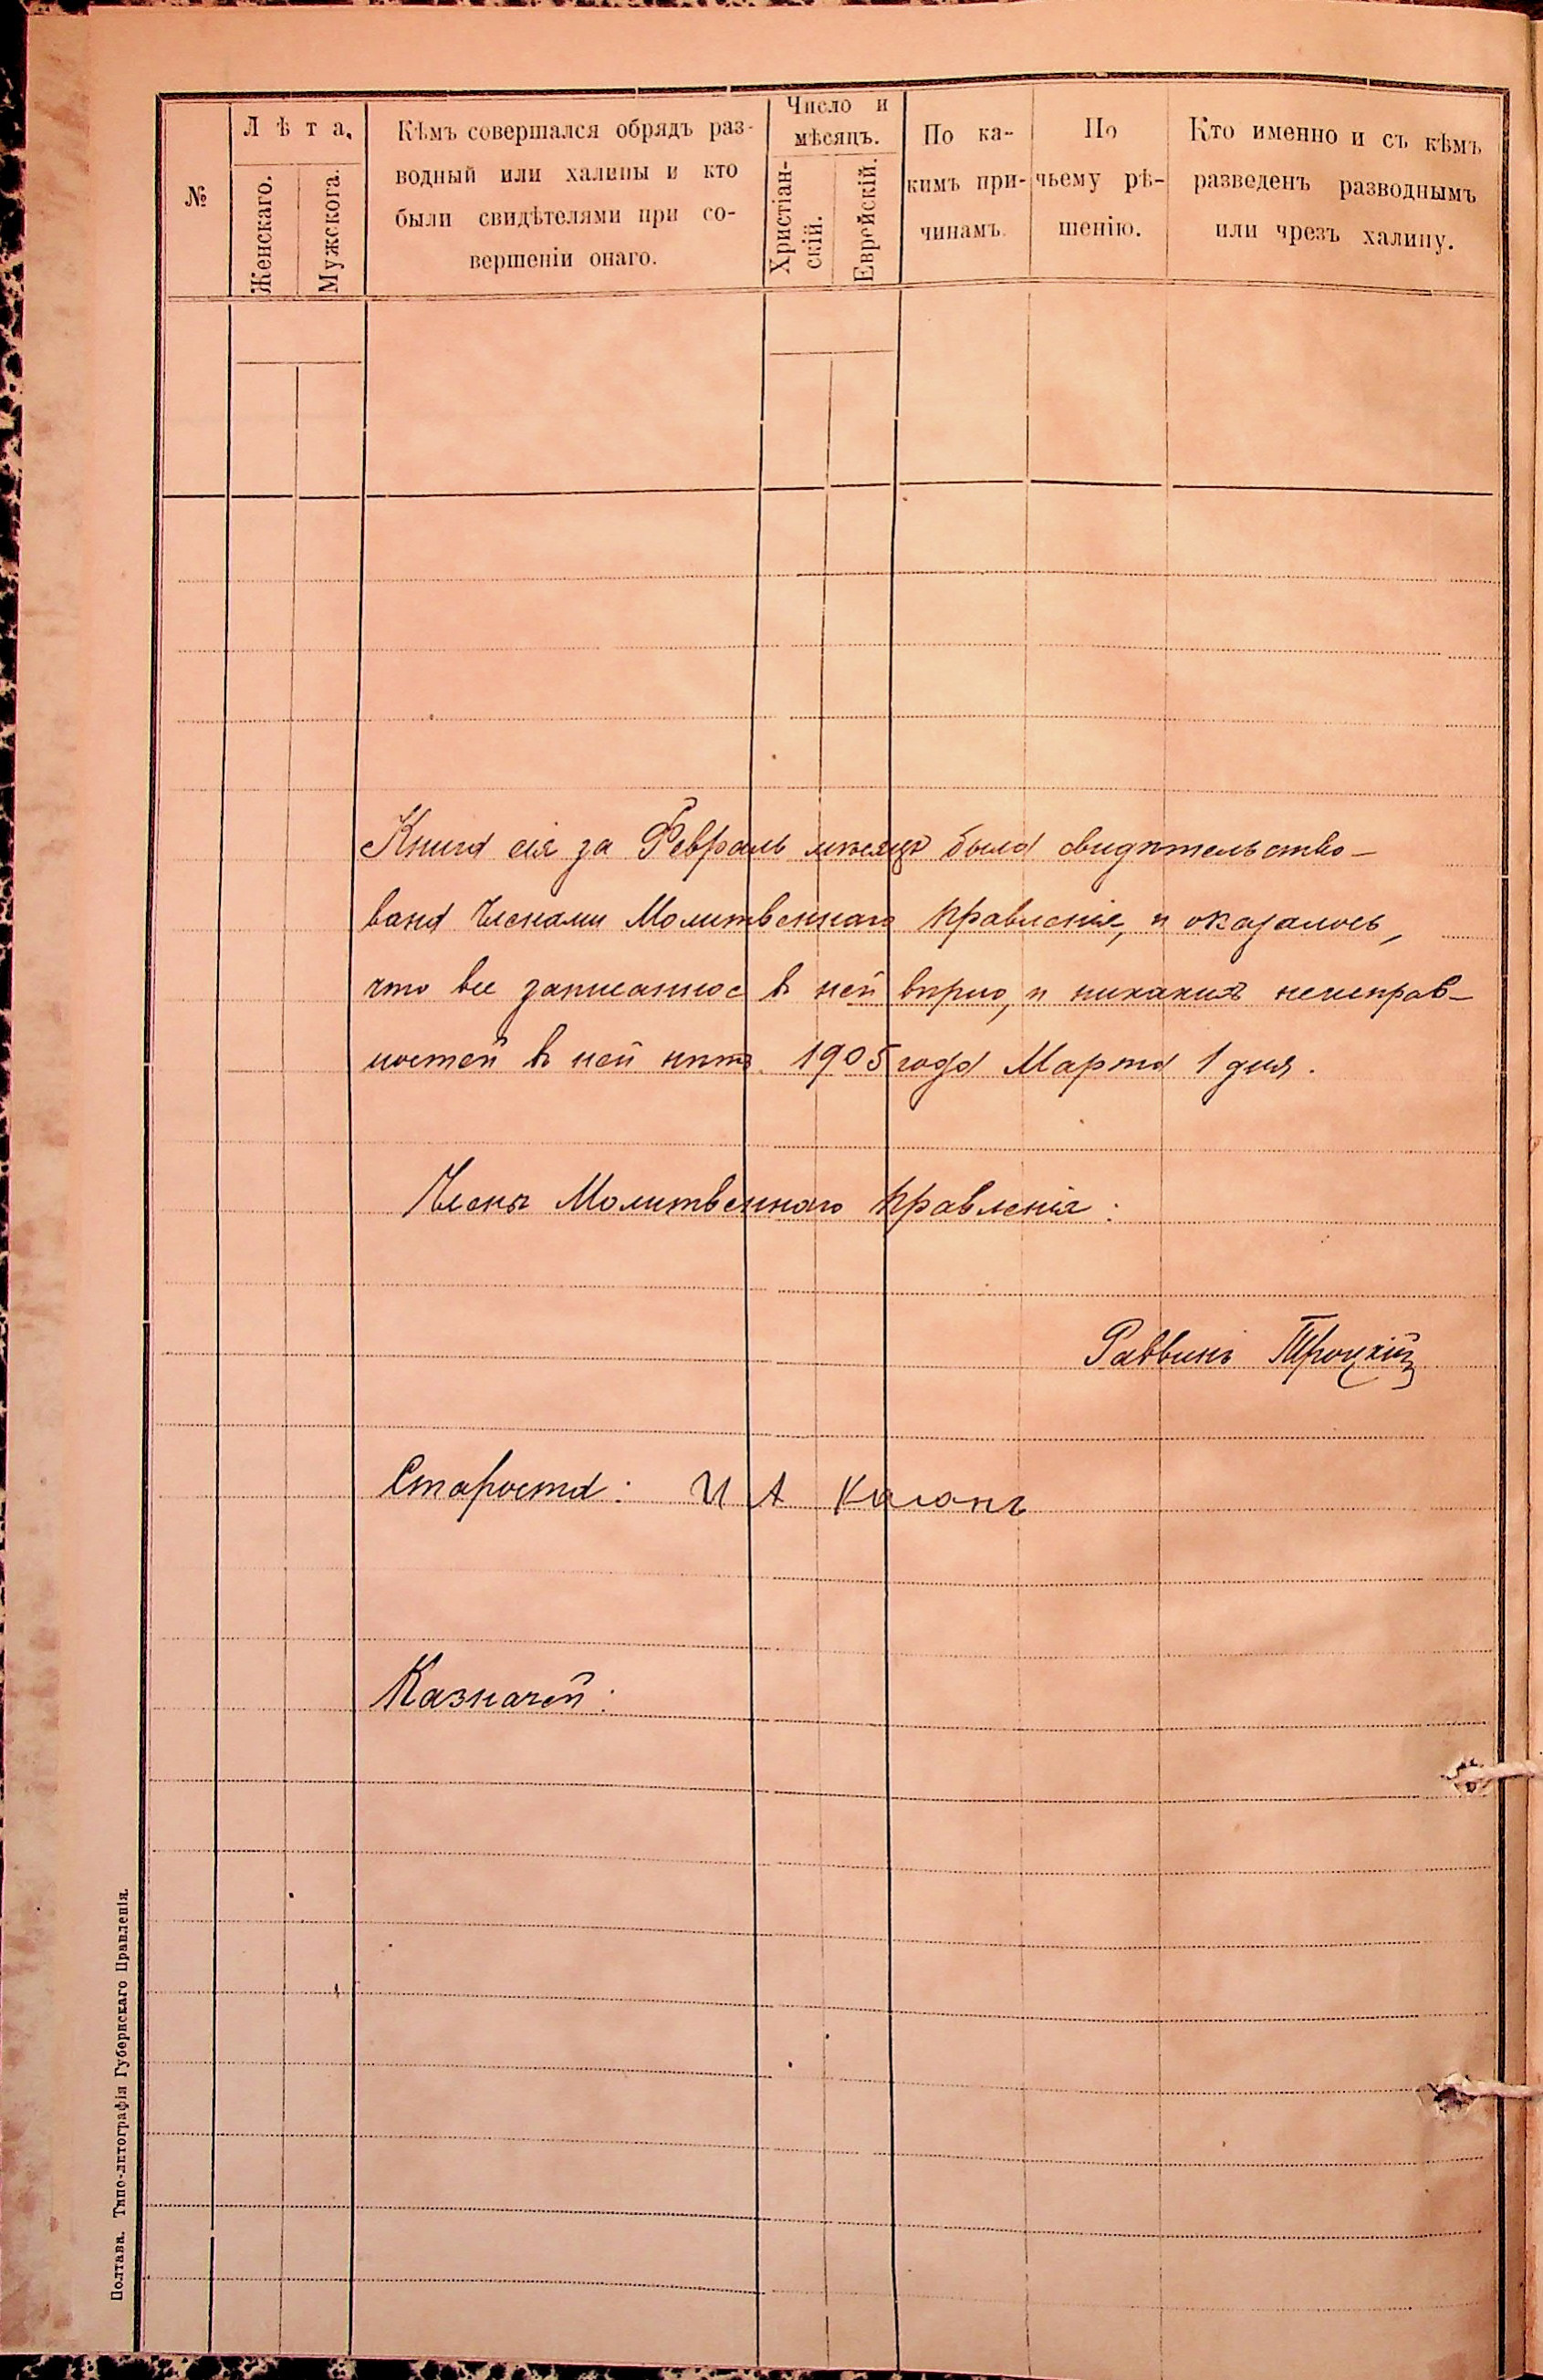 №
Лѣта.
Женскаго.
Мужскога.
Кѣмъ совершался обрядъ раз-
водный или халицы и кто
были свидѣтелями при со-
вершеніи онаго.
Число и
мѣсяцъ.
Христіан-
скій.
Еврейскій.
По ка-
кимъ при-
чинамъ.
По
чьему рѣ-
шенію.
Кто именно и съ кѣмъ
разведенъ разводнымъ
или чрезъ халицу.
Книга сія за Февраль мѣсяцъ была свидѣтельство-
вана Членами Молитвеннаго Правленія, и оказалось,
что все записанное въ ней вѣрно, и никакихъ неисправ-
ностей въ ней нѣтъ. 1905 года Марта 1 дня.
Члены Молитвеннаго Правленія:
Раввинъ Троцкій
Староста: И А Каганъ
Казначей:
Полтава. Типо-литографія Губернскаго Правленія.